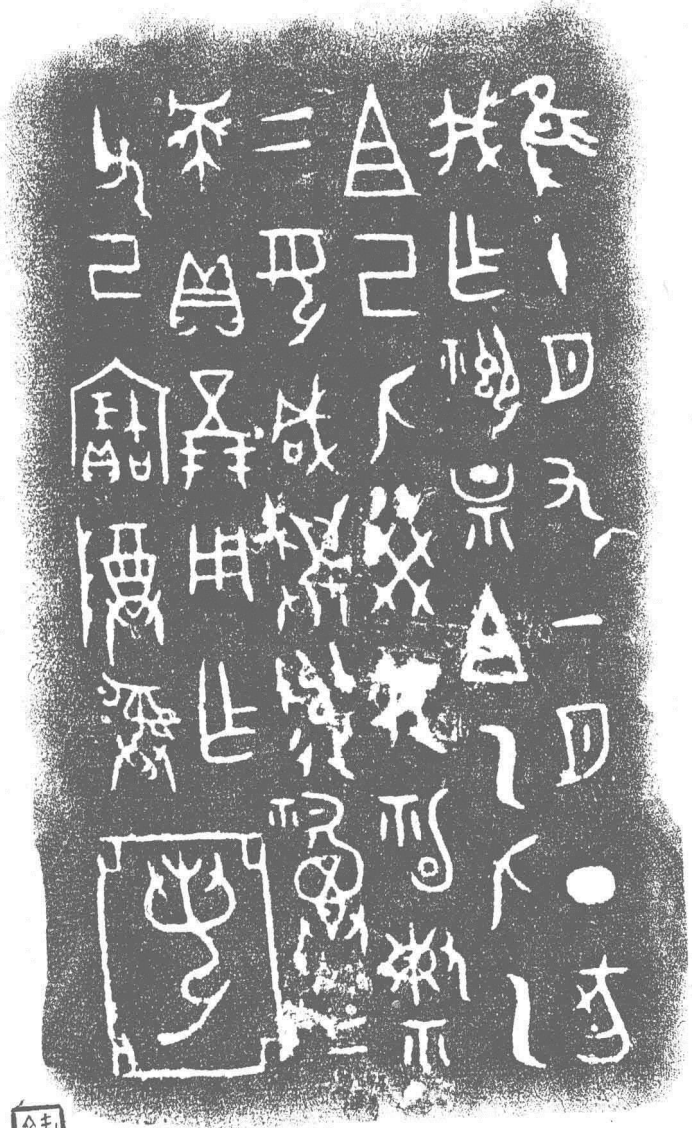 隹十月又一月丁亥
我乍禦且乙匕乙
且己匕癸延礿
二母咸與遣祼二
貝五朋用乍
父己寶尊彝亞若